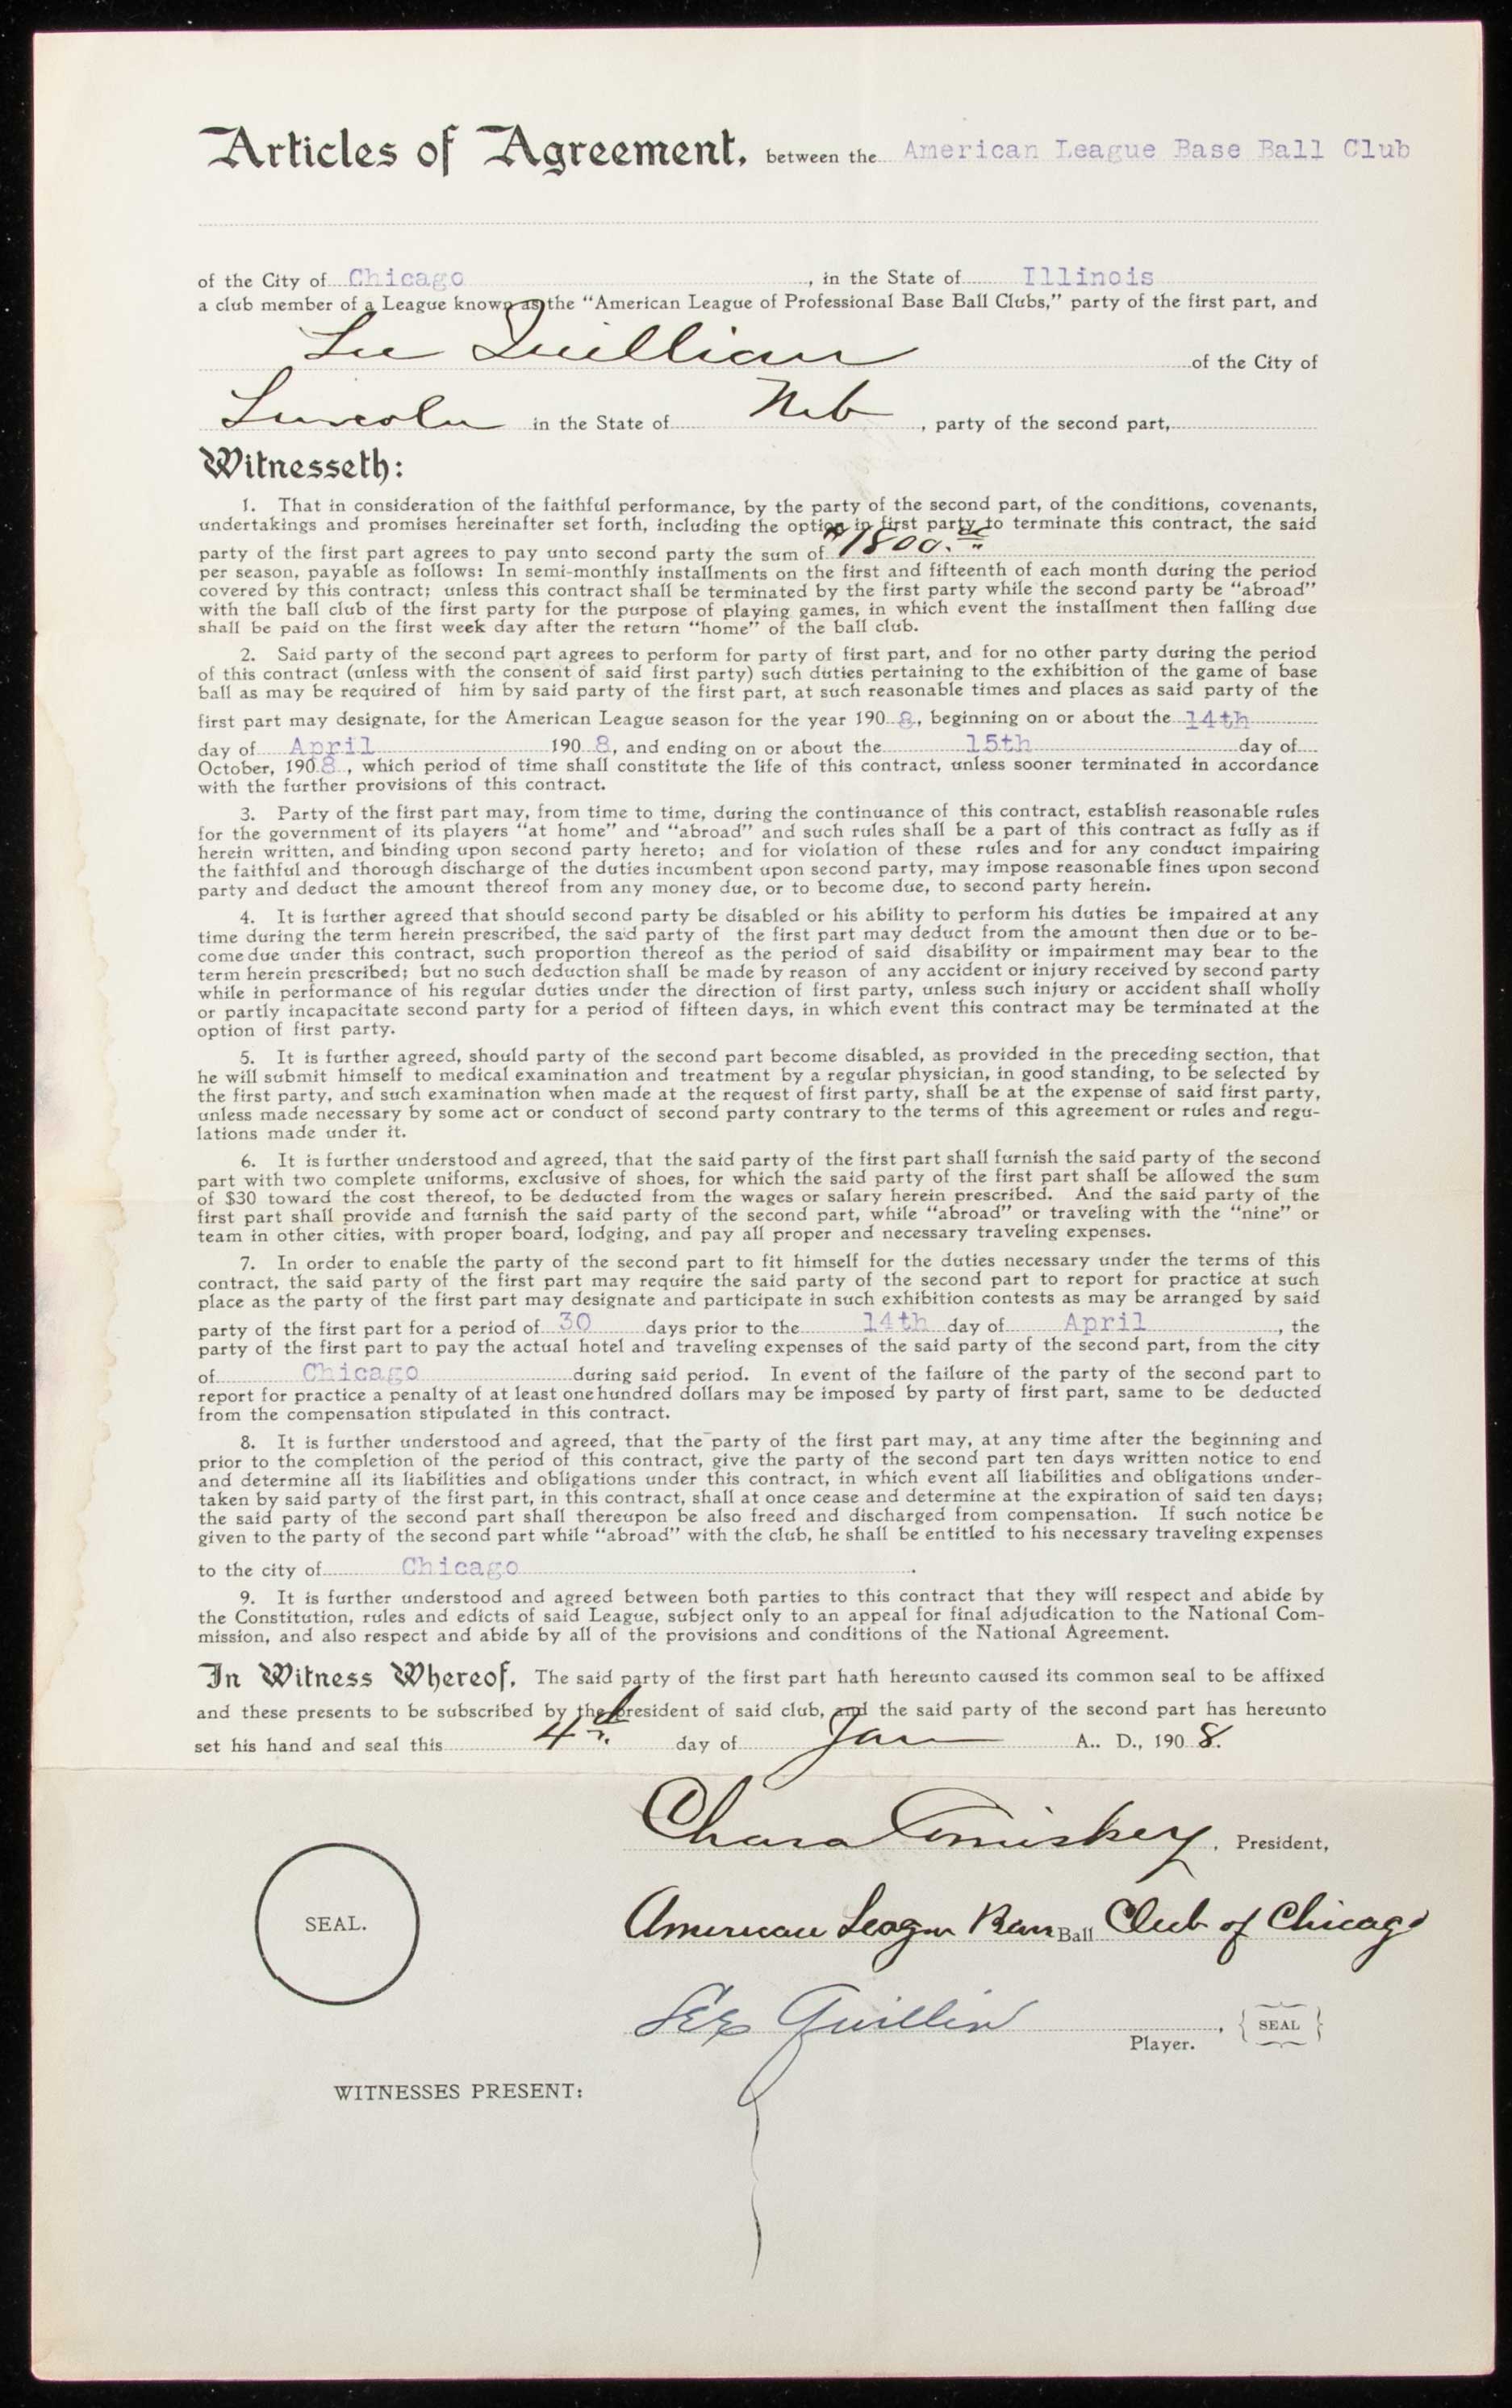 Articles of Agreement, between the American League Base Ball Club
of the City of Chicago, in the State of Illinois
a club member of a League known as the “American League of Professional Base Ball Clubs,” party of the first part, and
Lee Quillian of the City of
Lincoln in the State of Neb, party of the second part,
Witnesseth:
1. That in consideration of the faithful performance, by the party of the second part, of the conditions, covenants,
undertakings and promises hereinafter set forth, including the option in first party to terminate this contract, the said
party of the first part agrees to pay unto second party the sum of "1800.00"
per season, payable as follows: In semi-monthly installments on the first and fifteenth of each month during the period
covered by this contract; unless this contract shall be terminated by the first party while the second party be “abroad”
with the ball club of the first party for the purpose of playing games, in which event the installment then falling due
shall be paid on the first week day after the return “home” of the ball club.
2. Said party of the second part agrees to perform for party of first part, and for no other party during the period
of this contract (unless with the consent of said first party) such duties pertaining to the exhibition of the game of base
ball as may be required of him by said party of the first part, at such reasonable times and places as said party of the
first part may designate, for the American League season for the year 190 8, beginning on or about the 14th
day of April 190 8, and ending on or about the 15th day of
October, 190 8, which period of time shall constitute the life of this contract, unless sooner terminated in accordance
with the further provisions of this contract.
3. Party of the first part may, from time to time, during the continuance of this contract, establish reasonable rules
for the government of its players “at home” and “abroad” and such rules shall be a part of this contract as fully as if
herein written, and binding upon second party hereto; and for violation of these rules and for any conduct impairing
the faithful and thorough discharge of the duties incumbent upon second party, may impose reasonable fines upon second
party and deduct the amount thereof from any money due, or to become due, to second party herein.
4. It is further agreed that should second party be disabled or his ability to perform his duties be impaired at any
time during the term herein prescribed, the said party of the first part may deduct from the amount then due or to be-
come due under this contract, such proportion thereof as the period of said disability or impairment may bear to the
term herein prescribed; but no such deduction shall be made by reason of any accident or injury received by second party
while in performance of his regular duties under the direction of first party, unless such injury or accident shall wholly
or partly incapacitate second party for a period of fifteen days, in which event this contract may be terminated at the
option of first party.
5. It is further agreed, should party of the second part become disabled, as provided in the preceding section, that
he will submit himself to medical examination and treatment by a regular physician, in good standing, to be selected by
the first party, and such examination when made at the request of first party, shall be at the expense of said first party,
unless made necessary by some act or conduct of second party contrary to the terms of this agreement or rules and regu-
lations made under it.
6. It is further understood and agreed, that the said party of the first part shall furnish the said party of the second
part with two complete uniforms, exclusive of shoes, for which the said party of the first part shall be allowed the sum
of $30 toward the cost thereof, to be deducted from the wages or salary herein prescribed. And the said party of the
first part shall provide and furnish the said party of the second part, while “abroad” or traveling with the “nine” or
team in other cities, with proper board, lodging, and pay all proper and necessary traveling expenses.
7. In order to enable the party of the second part to fit himself for the duties necessary under the terms of this
contract, the said party of the first part may require the said party of the second part to report for practice at such
place as the party of the first part may designate and participate in such exhibition contests as may be arranged by said
party of the first part for a period of 30 days prior to the 14th day of April, the
party of the first part to pay the actual hotel and traveling expenses of the said party of the second part, from the city
of Chicago during said period. In event of the failure of the party of the second part to
report for practice a penalty of at least one hundred dollars may be imposed by party of first part, same to be deducted
from the compensation stipulated in this contract.
8. It is further understood and agreed, that the party of the first part may, at any time after the beginning and
prior to the completion of the period of this contract, give the party of the second part ten days written notice to end
and determine all its liabilities and obligations under this contract, in which event all liabilities and obligations under-
taken by said party of the first part, in this contract, shall at once cease and determine at the expiration of said ten days;
the said party of the second part shall thereupon be also freed and discharged from compensation. If such notice be
given to the party of the second part while “abroad” with the club, he shall be entitled to his necessary traveling expenses
to the city of Chicago.
9. It is further understood and agreed between both parties to this contract that they will respect and abide by
the Constitution, rules and edicts of said League, subject only to an appeal for final adjudication to the National Com-
mission, and also respect and abide by all of the provisions and conditions of the National Agreement.
In Witness Whereof, The said party of the first part hath hereunto caused its common seal to be affixed
and these presents to be subscribed by the president of said club, and the said party of the second part has hereunto
set his hand and seal this 4th day of Jan A.. D., 190 8.
Chas A Comiskey, President,
SEAL.
American League Base Ball Club of Chicago
Lee Quillin, SEAL
Player.
WITNESSES PRESENT: